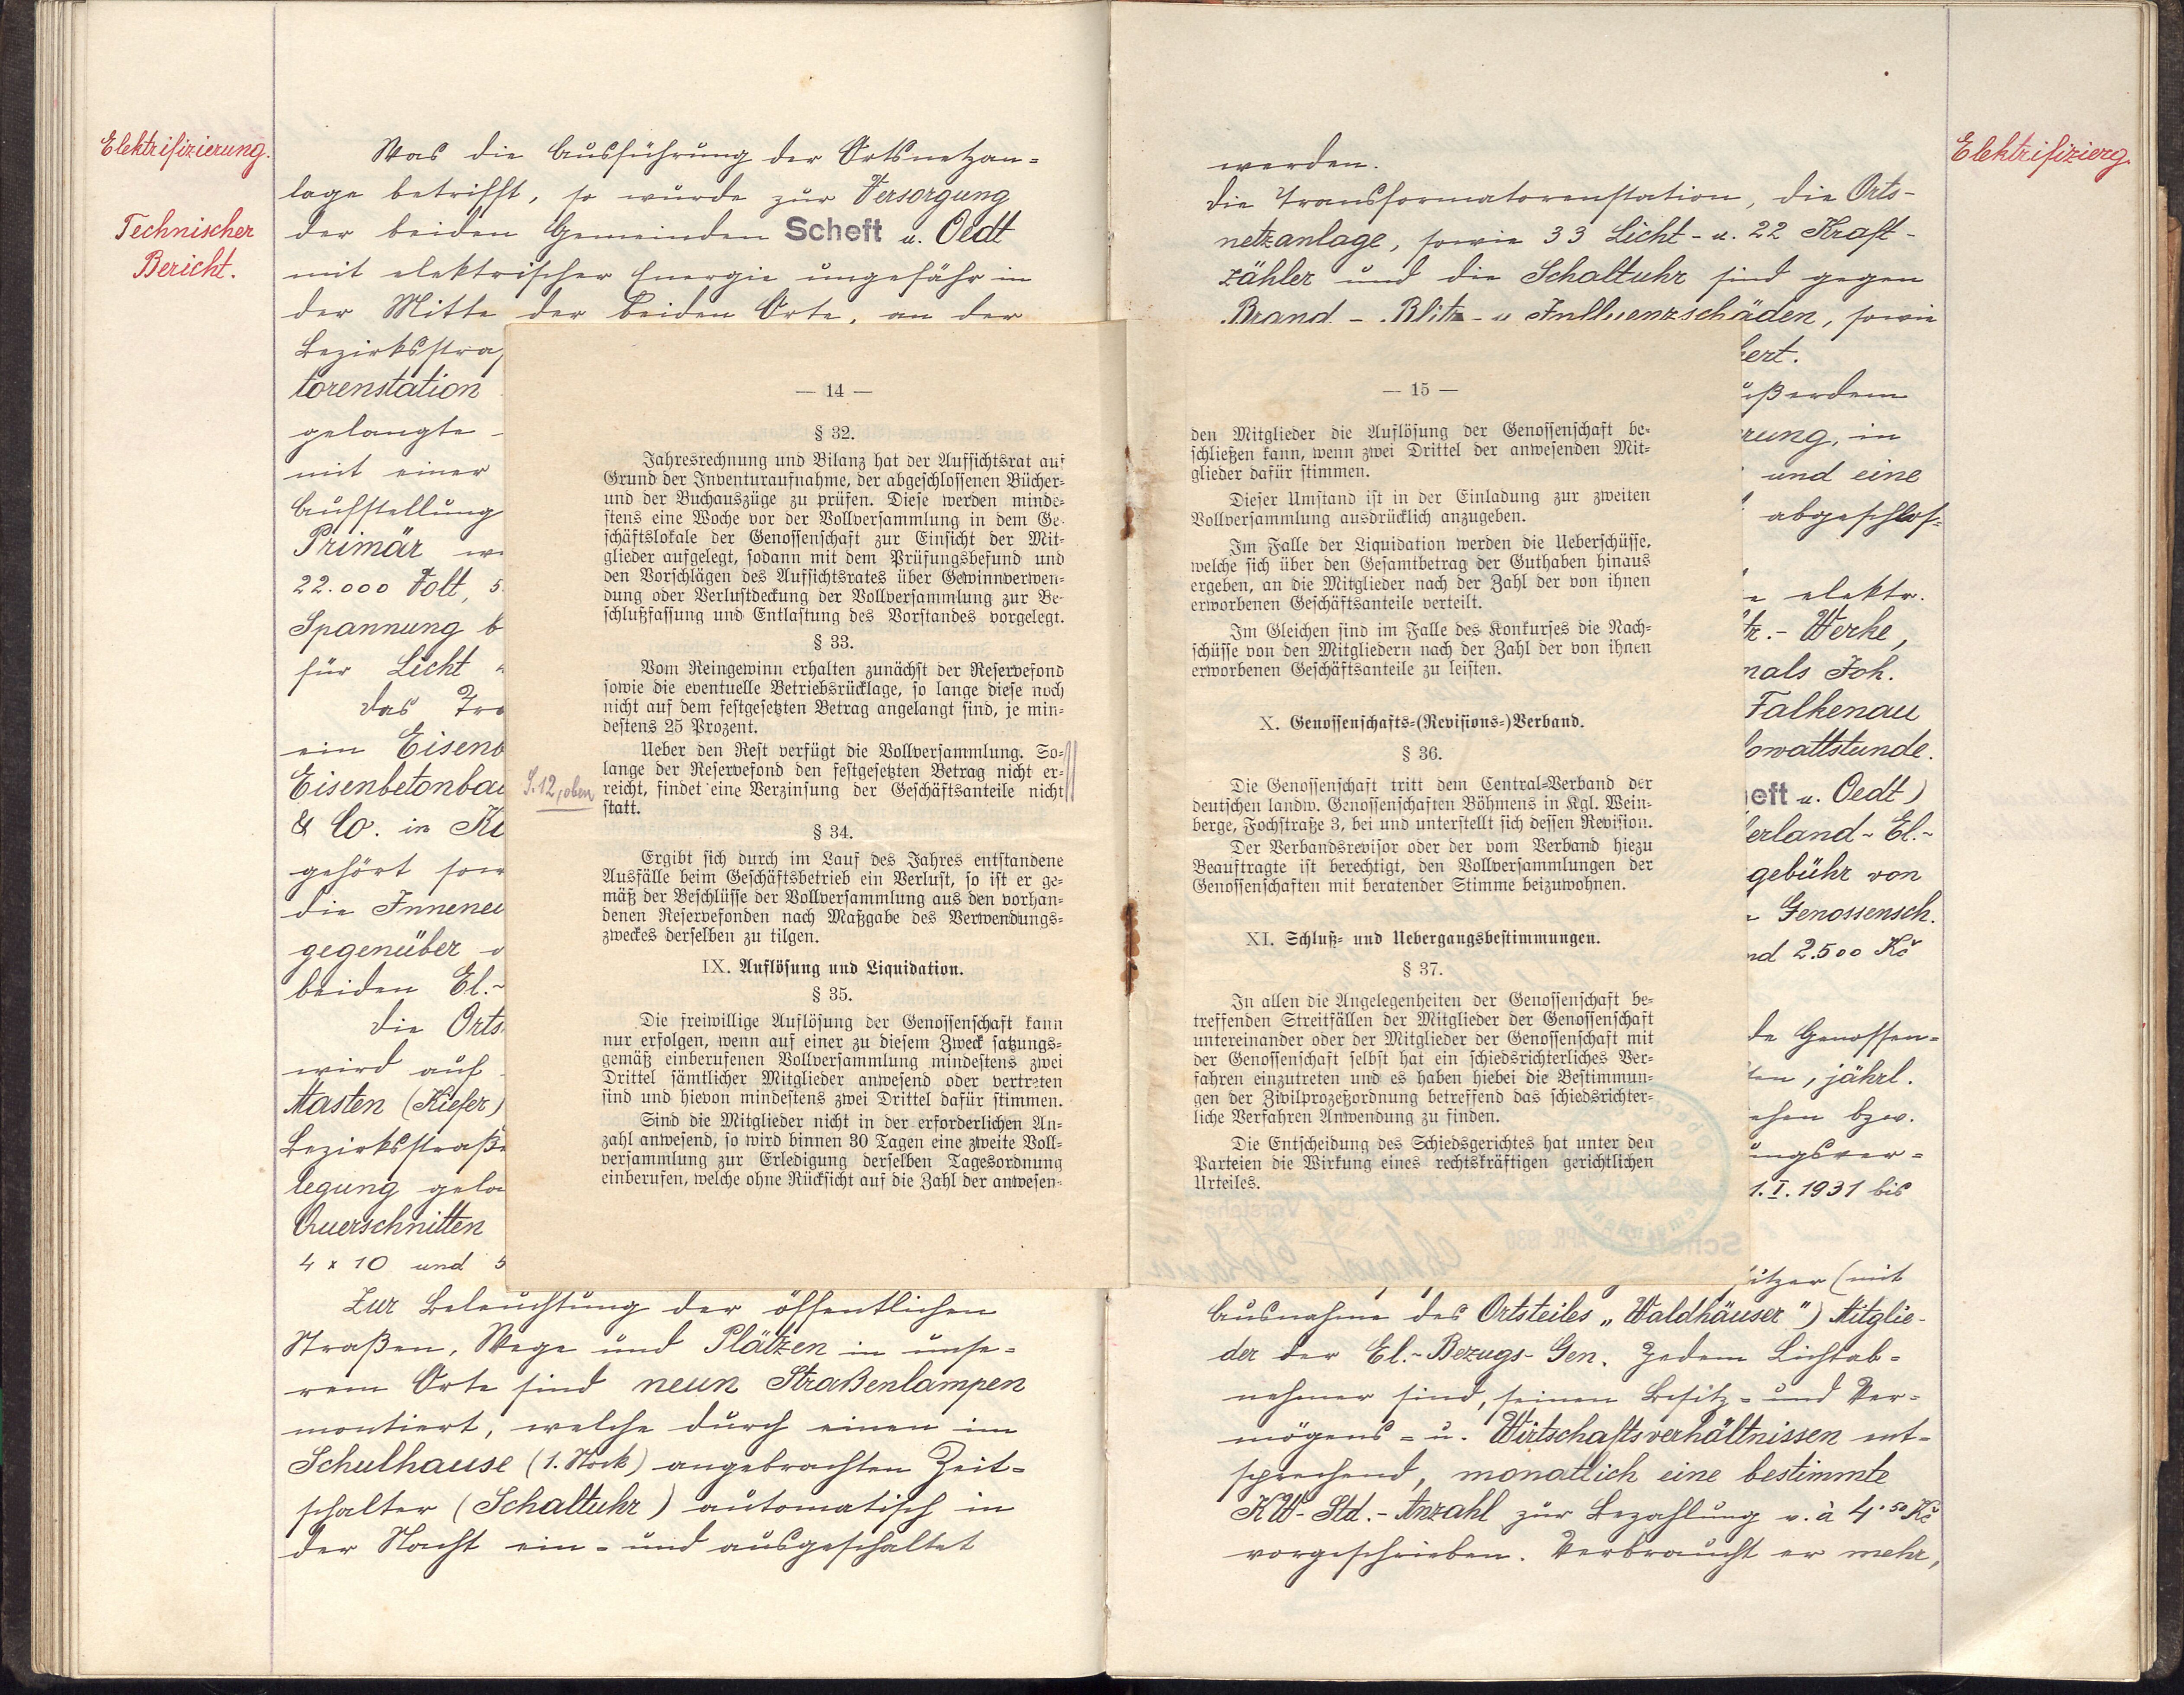 Elektrifizierung.
Technischer
Bericht.
Was die Ausführung der Ortsnetzan=
lage betrifft, so wurde zur Versorgung
der beiden Gemeinden Scheft u. Oedt
mit elektrischer Energie ungefähr in
der Mitte der beiden Orte, an der
Bezirksstra
torenstation
gelangte
mit einer
Aufstellung
Primär
22.000 Volt, 5
Spannung b
für Licht
Das Tra
ein Eisenb
Eisenbetonbau
& Co. in
gehört sow
die Innenei
gegenüber
beiden El.-
Die Orts
wird auf
Masten (Kiefer)
Bezirksstraße
legung gela
Querschnitten
4 x 10 und 5
Zur Beleuchtung der öffentlichen
Straßen, Wege und Plätzen in unse=
rem Orte sind neun Straßenlampen
montiert, welche durch einen im
Schulhause (1. Stock) angebrachten Zeit=
schalter (Schaltuhr) automatisch in
der Nacht ein= und ausgeschaltet
— 14 —
§ 32.
Jahresrechnung und Bilanz hat der Aufsichtsrat auf
Grund der Inventuraufnahme, der abgeschlossenen Bücher-
und der Buchauszüge zu prüfen. Diese werden minde-
stens eine Woche vor der Vollversammlung in dem Ge-
schäftslokale der Genossenschaft zur Einsicht der Mit-
glieder aufgelegt, sodann mit dem Prüfungsbefund und
den Vorschlägen des Aufsichtsrates über Gewinnverwen-
dung oder Verlustdeckung der Vollversammlung zur Be-
schlußfassung und Entlastung des Vorstandes vorgelegt.
§ 33.
Vom Reingewinn erhalten zunächst der Reservefond
sowie die eventuelle Betriebsrücklage, so lange diese noch
nicht auf dem festgesetzten Betrag angelangt sind, je min-
destens 25 Prozent.
Ueber den Rest verfügt die Vollversammlung. So-
lange der Reservefond den festgesetzten Betrag nicht er-
S. 12, oben reicht, findet eine Verzinsung der Geschäftsanteile nicht
statt.
§ 34.
Ergibt sich durch im Lauf des Jahres entstandene
Ausfälle beim Geschäftsbetrieb ein Verlust, so ist er ge-
mäß der Beschlüsse der Vollversammlung aus den vorhan-
denen Reservefonden nach Maßgabe des Verwendungs-
zweckes derselben zu tilgen.
IX. Auflösung und Liquidation.
§ 35.
Die freiwillige Auflösung der Genossenschaft kann
nur erfolgen, wenn auf einer zu diesem Zweck satzungs-
gemäß einberufenen Vollversammlung mindestens zwei
Drittel sämtlicher Mitglieder anwesend oder vertreten
sind und hievon mindestens zwei Drittel dafür stimmen.
Sind die Mitglieder nicht in der erforderlichen An-
zahl anwesend, so wird binnen 30 Tagen eine zweite Voll-
versammlung zur Erledigung derselben Tagesordnung
einberufen, welche ohne Rücksicht auf die Zahl der anwesen-
— 15 —
den Mitglieder die Auflösung der Genossenschaft be-
schließen kann, wenn zwei Drittel der anwesenden Mit-
glieder dafür stimmen.
Dieser Umstand ist in der Einladung zur zweiten
Vollversammlung ausdrücklich anzugeben.
Im Falle der Liquidation werden die Ueberschüsse,
welche sich über den Gesamtbetrag der Guthaben hinaus
ergeben, an die Mitglieder nach der Zahl der von ihnen
erworbenen Geschäftsanteile verteilt.
Im Gleichen sind im Falle des Konkurses die Nach-
schüsse von den Mitgliedern nach der Zahl der von ihnen
erworbenen Geschäftsanteile zu leisten.
X. Genossenschafts-(Revisions-)Verband.
§ 36.
Die Genossenschaft tritt dem Central-Verband der
deutschen landw. Genossenschaften Böhmens in Kgl. Wein-
berge, Fochstraße 3, bei und unterstellt sich dessen Revision.
Der Verbandsrevisor oder der vom Verband hiezu
Beauftragte ist berechtigt, den Vollversammlungen der
Genossenschaften mit beratender Stimme beizuwohnen.
XI. Schluß- und Uebergangsbestimmungen.
§ 37.
In allen die Angelegenheiten der Genossenschaft be-
treffenden Streitfällen der Mitglieder der Genossenschaft
untereinander oder der Mitglieder der Genossenschaft mit
der Genossenschaft selbst hat ein schiedsrichterliches Ver-
fahren einzutreten und es haben hiebei die Bestimmun-
gen der Zivilprozeßordnung betreffend das schiedsrichter-
liche Verfahren Anwendung zu finden.
Die Entscheidung des Schiedsgerichtes hat unter den
Parteien die Wirkung eines rechtskräftigen gerichtlichen
Urteiles.
Elektrifizierg.
werden.
Die Transformatorenstation, die Orts-
netzanlage, sowie 33 Licht- u. 22 Kraft-
zähler und die Schaltuhr sind gegen
Brand- Blitz- u Influenzschäden, sowie
ert.
ußerdem
rung, in
und eine
abgeschlos=
elektr.
tr.- Werke,
mals Joh.
Falkenau
lowattstunde.
eft u. Oedt)
erland- El.-
gebühr von
Genossensch.
nd 2.500 Kč
de Genossen=
ten, jährl.
ehen bzw.
ungsver=
1.I.1931 bis
itzer (mit
Ausnahme des Ortsteiles „Waldhäuser") Mitglie-
der der El.-Bezugs-Gen. Jedem Lichtab=
nehmer sind, seinen Besitz= und Ver=
mögens= u. Wirtschaftsverhältnissen ent=
sprechend, monatlich eine bestimmte
KW-Std.-Anzahl zur Bezahlung v. à 4·50 Kč
vorgeschrieben. Verbraucht er mehr,